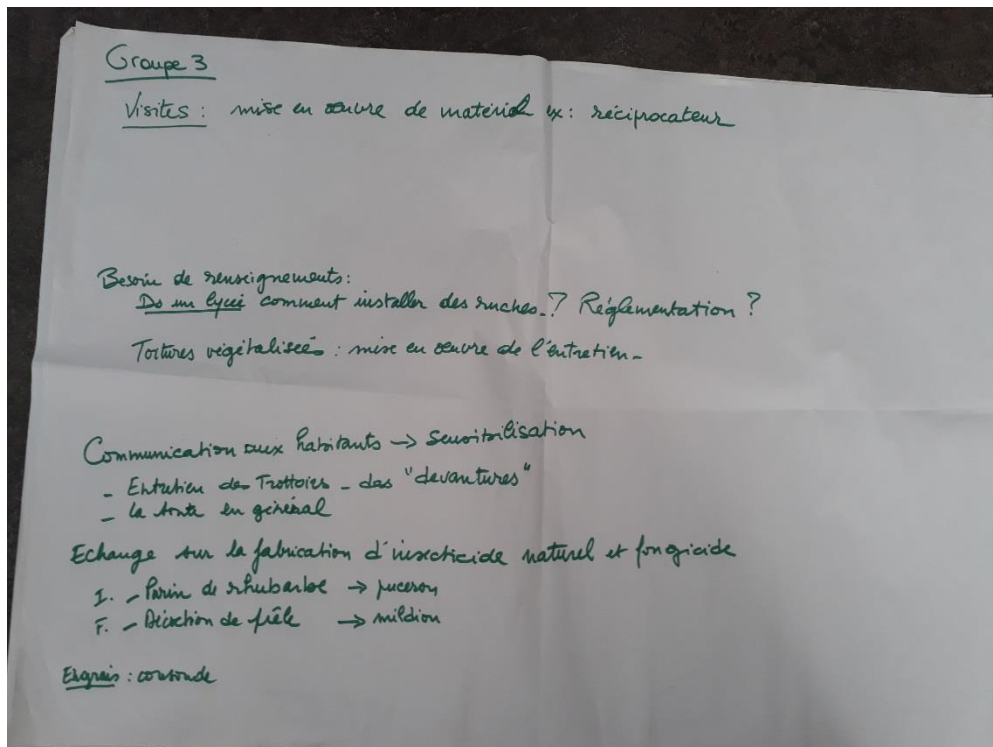 Groupe 3
Visites : mise en œuvre de matériel ex : réciprocateur
Besoin de renseignements :
Ds un lycée comment installer des ruches ? Réglementation ?
Toitures végétalisées : mise en œuvre de l'entretien -
Communication aux habitants → sensibilisation
- Entretien des Trottoirs - des "devantures"
- La tonte en général
Echange sur la fabrication d'insecticide naturel et fongicide
I. - Purin de rhubarbe → puceron
F. - Décoction de prêle → mildiou
Engrais : consoude